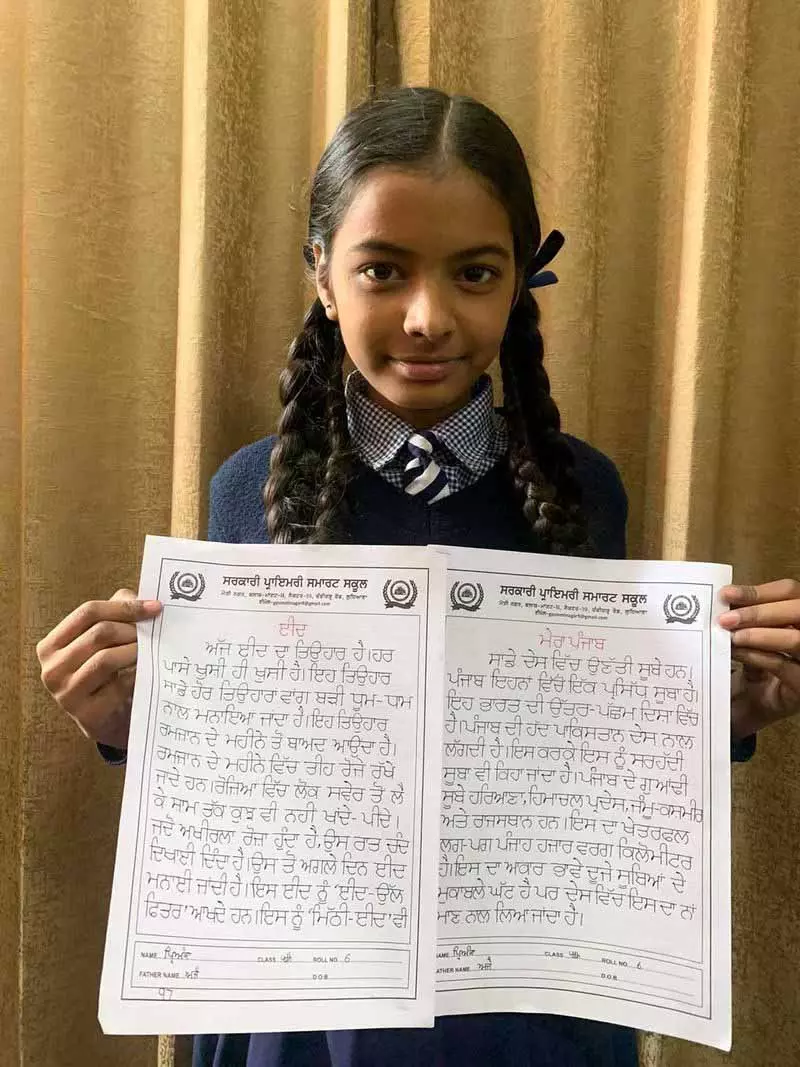 ਸਰਕਾਰੀ ਪ੍ਰਾਇਮਰੀ ਸਮਾਰਟ ਸਕੂਲ
ਮੋਤੀ ਨਗਰ, ਬਲਾਕ-ਮਾਂਗਟ-II, ਸੈਕਟਰ-39, ਚੰਡੀਗੜ੍ਹ ਰੋਡ, ਲੁਧਿਆਣਾ
ਈਦ
ਅੱਜ ਈਦ ਦਾ ਤਿਉਹਾਰ ਹੈ।ਹਰ
ਪਾਸੇ ਖੁਸ਼ੀ ਹੀ ਖੁਸ਼ੀ ਹੈ।ਇਹ ਤਿਉਹਾਰ
ਸਾਡੇ ਹੋਰ ਤਿਉਹਾਰਾਂ ਵਾਂਗ ਬੜੀ ਧੂਮ-ਧਾਮ
ਨਾਲ ਮਨਾਇਆ ਜਾਂਦਾ ਹੈ।ਇਹ ਤਿਉਹਾਰ
ਰਮਜ਼ਾਨ ਦੇ ਮਹੀਨੇ ਤੋਂ ਬਾਅਦ ਆਉਂਦਾ ਹੈ।
ਰਮਜ਼ਾਨ ਦੇ ਮਹੀਨੇ ਵਿੱਚ ਤੀਹ ਰੋਜ਼ੇ ਰੱਖੇ
ਜਾਂਦੇ ਹਨ।ਰੋਜ਼ਿਆਂ ਵਿੱਚ ਲੋਕ ਸਵੇਰ ਤੋਂ ਲੈ
ਕੇ ਸ਼ਾਮ ਤੱਕ ਕੁਝ ਵੀ ਨਹੀਂ ਖਾਂਦੇ-ਪੀਂਦੇ।
ਜਦੋਂ ਅਖੀਰਲਾ ਰੋਜ਼ਾ ਹੁੰਦਾ ਹੈ,ਉਸ ਰਾਤ ਚੰਦ
ਦਿਖਾਈ ਦਿੰਦਾ ਹੈ।ਉਸ ਤੋਂ ਅਗਲੇ ਦਿਨ ਈਦ
ਮਨਾਈ ਜਾਂਦੀ ਹੈ।ਇਸ ਈਦ ਨੂੰ 'ਈਦ-ਉੱਲ
ਫਿਤਰ' ਆਖਦੇ ਹਨ।ਇਸ ਨੂੰ 'ਮਿੱਠੀ-ਈਦ' ਵੀ
NAME ਪ੍ਰਿਅੰਕਾ CLASS 4th ROLL NO. 6
FATHER NAME ਅਜੈ D.O.B
ਸਰਕਾਰੀ ਪ੍ਰਾਇਮਰੀ ਸਮਾਰਟ ਸਕੂਲ
ਮੋਤੀ ਨਗਰ, ਬਲਾਕ-ਮਾਂਗਟ-II, ਸੈਕਟਰ-39, ਚੰਡੀਗੜ੍ਹ ਰੋਡ, ਲੁਧਿਆਣਾ
ਮੇਰਾ ਪੰਜਾਬ
ਸਾਡੇ ਦੇਸ ਵਿੱਚ ਉਣੱਤੀ ਸੂਬੇ ਹਨ।
ਪੰਜਾਬ ਇਹਨਾਂ ਵਿੱਚੋਂ ਇੱਕ ਪ੍ਰਸਿੱਧ ਸੂਬਾ ਹੈ।
ਇਹ ਭਾਰਤ ਦੀ ਉੱਤਰ-ਪੱਛਮ ਦਿਸ਼ਾ ਵਿੱਚ
ਹੈ।ਪੰਜਾਬ ਦੀ ਹੱਦ ਪਾਕਿਸਤਾਨ ਦੇਸ ਨਾਲ
ਲੱਗਦੀ ਹੈ।ਇਸ ਕਰਕੇ ਇਸ ਨੂੰ ਸਰਹੱਦੀ
ਸੂਬਾ ਵੀ ਕਿਹਾ ਜਾਂਦਾ ਹੈ।ਪੰਜਾਬ ਦੇ ਗੁਆਂਢੀ
ਸੂਬੇ ਹਰਿਆਣਾ,ਹਿਮਾਚਲ ਪ੍ਰਦੇਸ,ਜੰਮੂ-ਕਸ਼ਮੀਰ
ਅਤੇ ਰਾਜਸਥਾਨ ਹਨ।ਇਸ ਦਾ ਖੇਤਰਫਲ
ਲਗ-ਪਗ ਪੰਜਾਹ ਹਜ਼ਾਰ ਵਰਗ ਕਿਲੋਮੀਟਰ
ਹੈ।ਇਸ ਦਾ ਅਕਾਰ ਭਾਵੇਂ ਦੂਜੇ ਸੂਬਿਆਂ ਦੇ
ਮੁਕਾਬਲੇ ਘੱਟ ਹੈ ਪਰ ਦੇਸ ਵਿੱਚ ਇਸ ਦਾ ਨਾਂ
ਮਾਣ ਨਾਲ ਲਿਆ ਜਾਂਦਾ ਹੈ।
NAME ਪ੍ਰਿਅੰਕਾ CLASS 4th ROLL NO. 6
FATHER NAME ਅਜੈ D.O.B